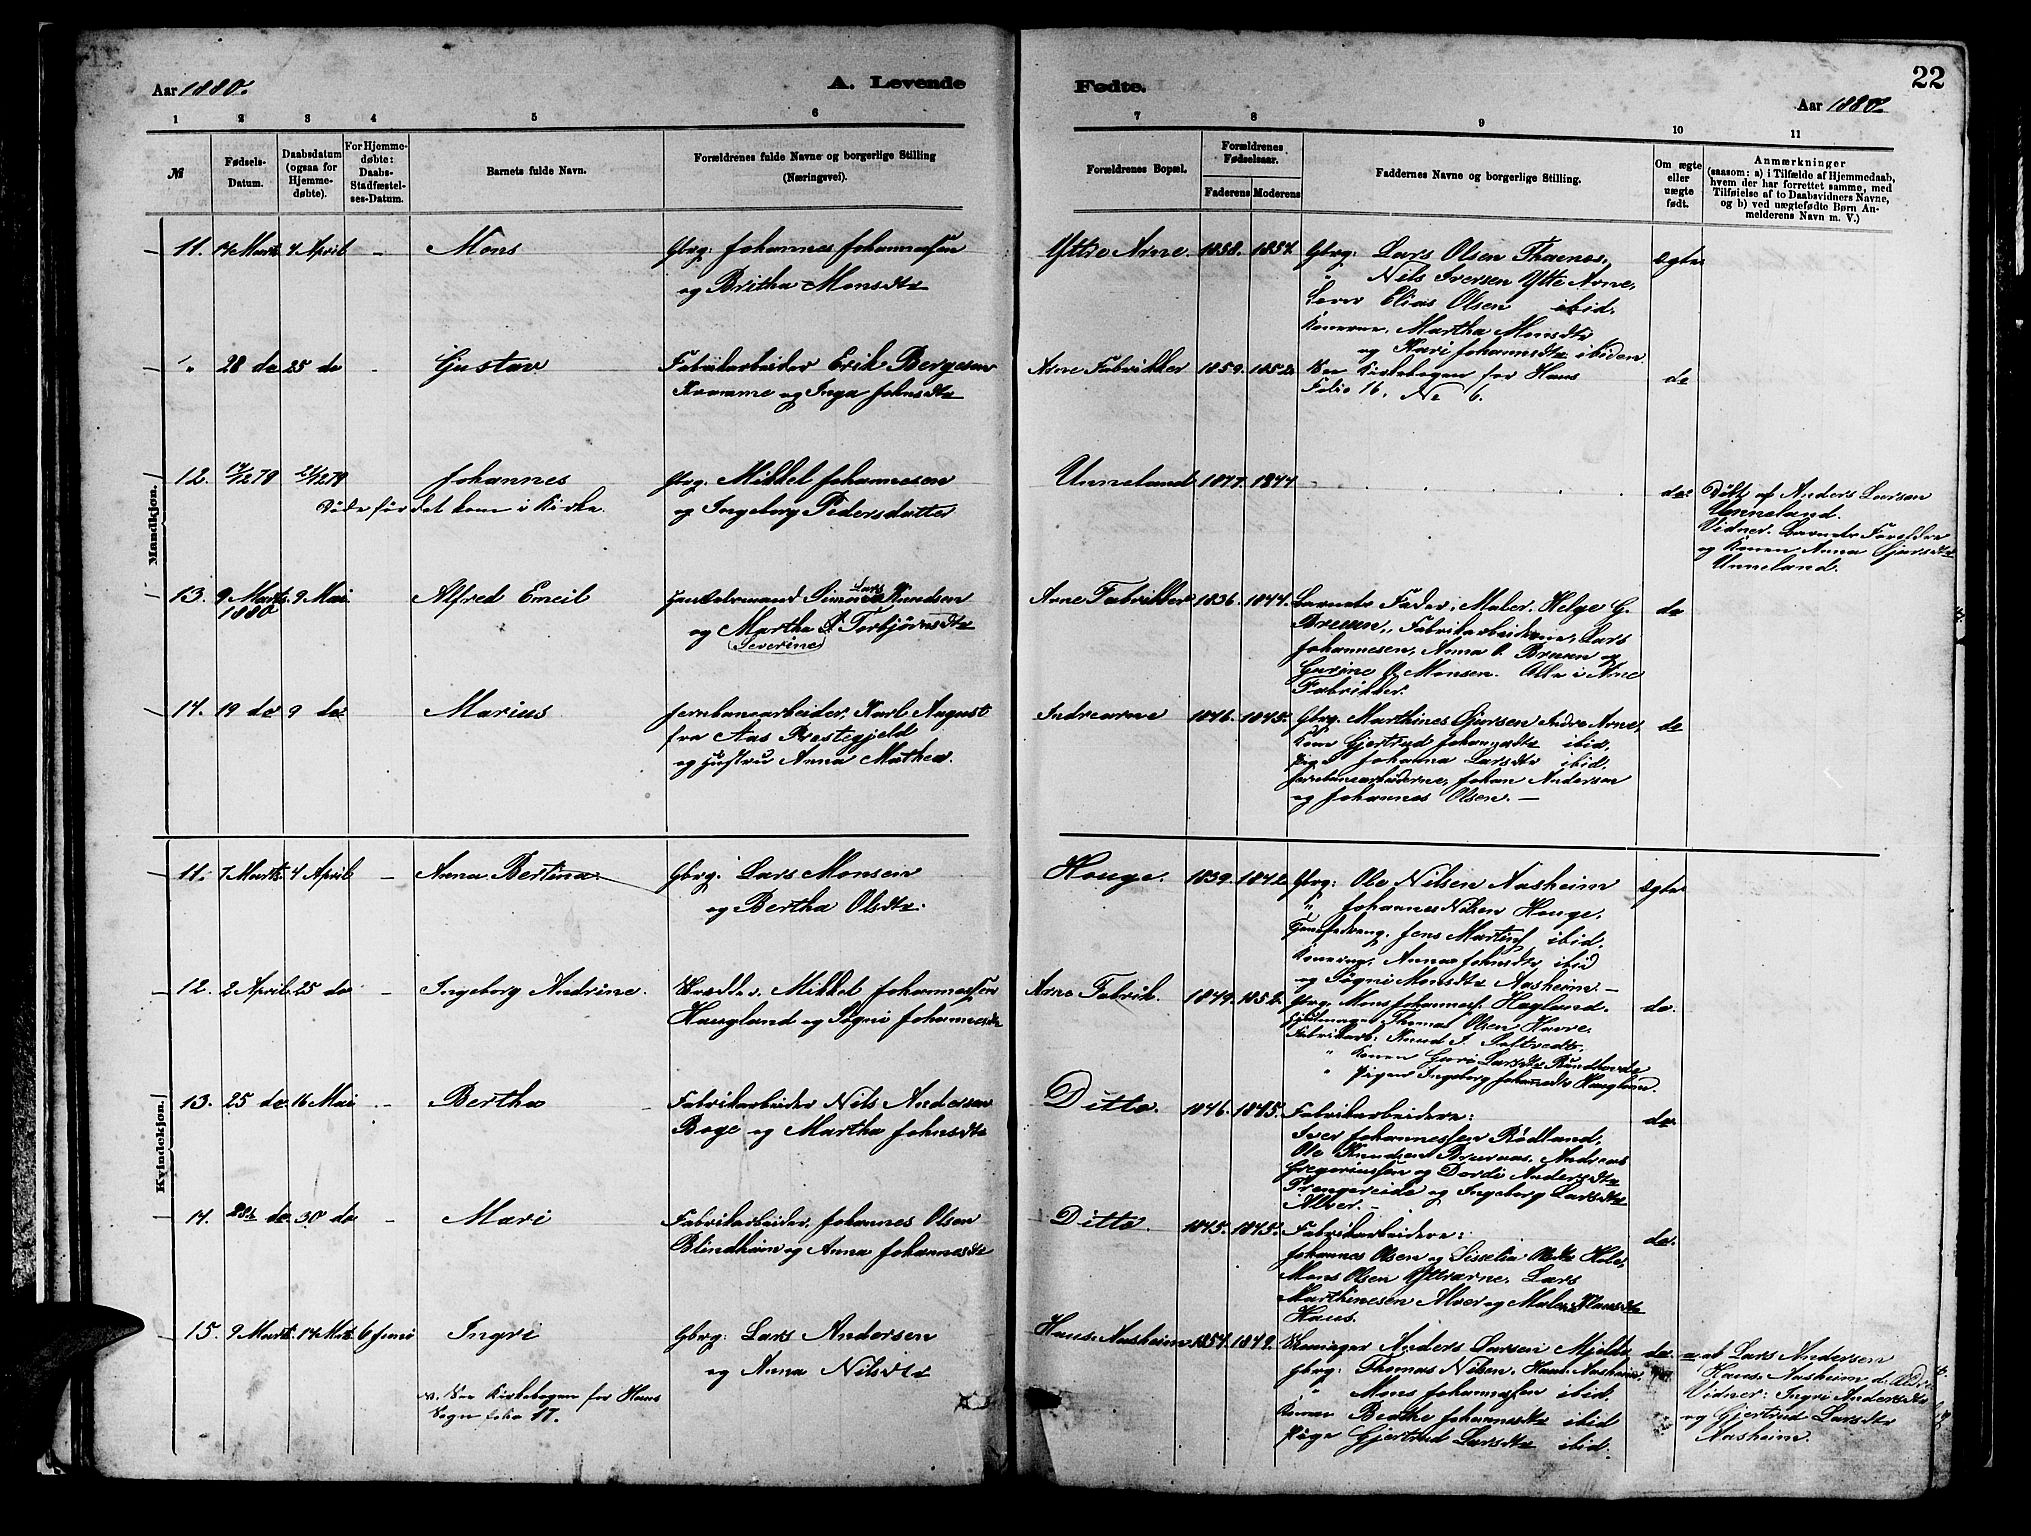 Aar 1880. A. Levende
1 2 3 4 5 6
№
Fødsels-
Datum.
Daabsdatum
(ogsaa for
Hjemme-
døbte).
For Hjemme-
døbte:
Daabs-
Stadfæstel-
ses-Datum.
Barnets fulde Navn.
Forældrenes fulde Navne og borgerlige Stilling
(Næringsvei).
Mandkjøn.
11. 14 Marts 4 April - Mons Gbrg: Johannes Johannessen
og Britha Monsdtr
" 28 do 25 do - Gustav Fabrikarbeider Erik Bergesen
Kvamme og Inga Johnsdtr
12. 14/12 79 21/12 79 Johannes Gbrg: Mikkel Johannesen
Døde før det kom i Kirke. og Ingeborg Pedersdatter
13. 9 Marts 9 Mai - Alfred Emeil Handelsmand Simon Lars Knudsen
1880
og Martha S Torbjørnsdtr
(Severine)
14. 19 do 9 do - Marius Jernbanearbeider, Karl August
fra Aas Prestegjeld
og Hustru Anna Mathea.
Kvindekjøn.
11. 7 Marts 4 April - Anna Bertina Gbrg: Lars Monsen
og Bertha Olsdtr.
12. 2 April 25 do - Ingeborg Andrine. Mikkel Johannessen
Haugland og Søgni Johannesdtr
13. 25 do 16 Mai - Bertha Fabrikarbeider Nils Andersen
Boge og Martha Johnsdtr
14. 28de do 30 do - Mari Fabrikarbeider, Johannes Olsen
Blindheim og Anna Johannesdtr
15. 9 Marts 14 Mts 6 Juni Ingri Gbrg: Lars Andersen
og Anna Nilsdtr
v. See Kirkebogen for Haus
Sogn folio 17.
Fødte. 22
Aar 1880
7 8 9 10 11
Forældrenes Bopæl.
Forældrenes
Fødselsaar.
Faderens Moderens
Faddernes Navne og borgerlige Stilling.
Om ægte
eller
uægte
født.
Anmærkninger
(saasom: a) i Tilfælde af Hjemmedaab,
hvem der har forrettet samme, med
Tilføielse af to Daabsvidners Navne,
og b) ved uægtefødte Børn An-
melderens Navn m. V.)
Yttre Arne 1858. 1857. Gbrg: Lars Olsen Thunes, ægte
" Nils Iversen Ytte Arne,
Elias Olsen ibid.
Konerne, Martha Monsdtr
og Kari Johannsdtr ibiden
Arne Fabrikker 1859. 1852. See Kirkebogen for Haus do
Folio 16. No 6.
Unneland 1844. do. Døbt af Anders Larsen
Unneland.
Vidner. Barnets Foreldre
og Konen Anna
Unneland.
Arne Fabrikker 1836. 1844. Barnets Fader, Maler, Helge G. do
Bruun, Fabrikarbeiderne, Lars
Johannesen, Anna O. Bruun og
Gurine O. Monsen. Alle i Arne
Fabrikker.
Indrearne 1846. 1845. Gbrg: Marthines Indre Arne, do
Kone Gjertrud Johannesdtr ibid,
Pige Johanna Larsdtr ibid.
Jernbanearbeiderne, Johan Andersen
og Johannes Olsen. —
Houge. 1839. 1842. Gbrg: Ole Nilsen Aasheim ægte
" Johannes Nilsen Houge,
Jens Martin ibid.
Anna Johnsdtr ibid
og Søgni Monsdtr Aasheim. —
Arne Fabrik. 1849. 1852. Gbrg. Mons Johannes. Hagland. do.
Thomas Olsen Havre.
Fabrikarb: Knud J.
" Konen Guri Larsdtr
" Pigen Ingeborg Johannesdtr Haugland.
Ditto. 1846. 1845. Fabrikarbeidere: do.
Iver Johannessen Rødland,
Ole Knudsen Bruraas, Andreas
Gregoriussen og Dordi Andersdtr
Trengereide og Ingeborg Larsdtr
Alver. —
Ditto. 1845. 1845. Fabrikarbeidere: do.
Johannes Olsen og Sisselia Olsdtr Hole,
Mons Olsen Yttrearne, Lars
Marthinesen Alver og Malene Klausdtr
Haus.
Haus. Aasheim 1854. 1849. Anders Larsen Mjelde do. a ab. Lars Andersen
Gbrg: Thomas Nilsen, Haus. Aasheim, Haus. Aasheim
" Mons Johannessen ibid, Vidner: Ingri Andersdtr
Konen Beathe Johannesdtr ibid og Gjertrud Larsdtr
Pige Gjertrud Larsdtr ibid. Aasheim.